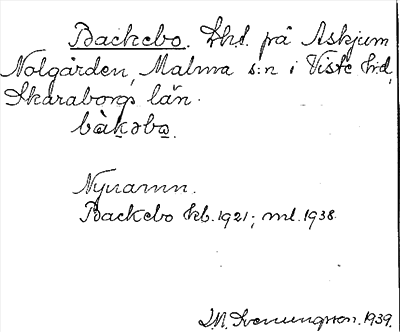 Backebo. Lht. på Askjum
Nolgården, Malma s:n i Viste hd,
Skaraborgs län.
bàkəbo.
Nynamn.
Backebo kb. 1921; ml. 1938
Svenungsson. 1939.